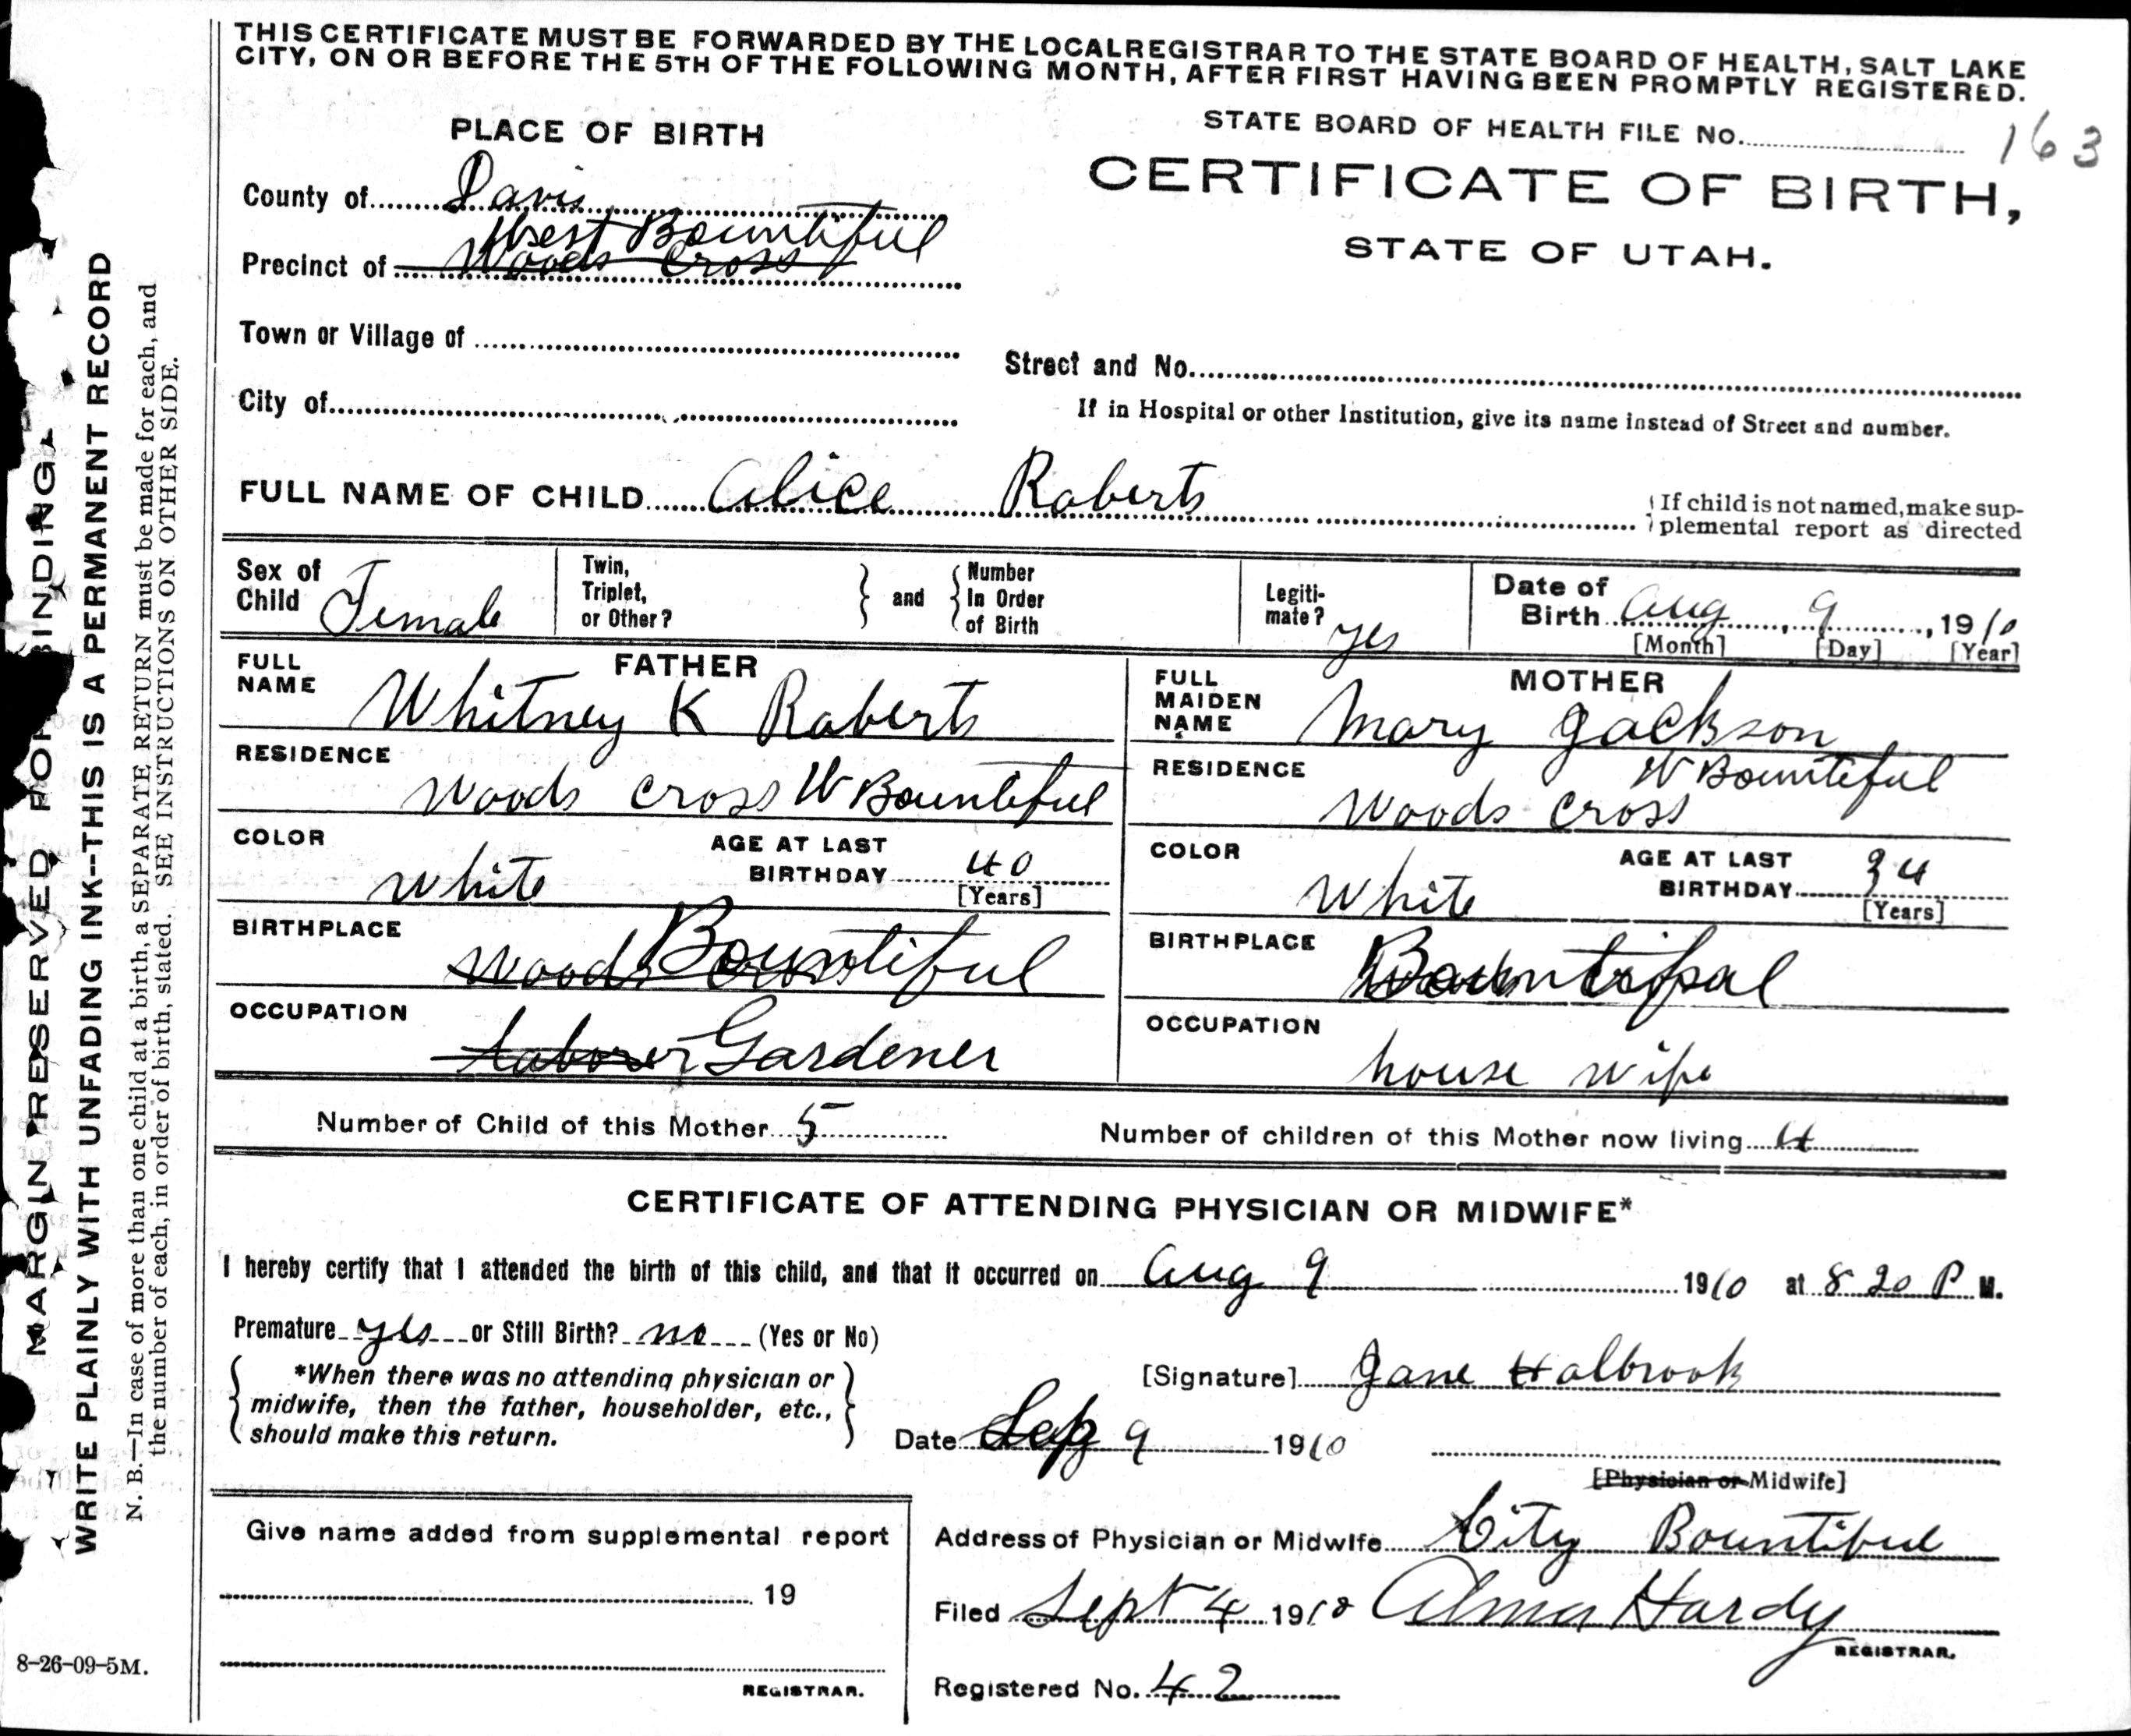 THIS CERTIFICATE MUST BE FORWARDED BY THE LOCAL REGISTRAR TO THE STATE BOARD OF HEALTH, SALT LAKE
CITY, ON OR BEFORE THE 5TH OF THE FOLLOWING MONTH, AFTER FIRST HAVING BEEN PROMPTLY REGISTERED.
PLACE OF BIRTH
STATE BOARD OF HEALTH FILE NO. 163
CERTIFICATE OF BIRTH,
STATE OF UTAH.
County of Davis
West Bountiful
Precinct of Woods Cross
Town or Village of
Street and No.
City of
If in Hospital or other Institution, give its name instead of Street and number.
FULL NAME OF CHILD Alice Roberts
If child is not named, make sup-
plemental report as directed
Sex of Child Female
Twin, Triplet, or Other? and Number In Order of Birth
Legiti-mate? yes
Date of Birth Aug 9, 1910
[Month] [Day] [Year]
FATHER
FULL NAME Whitney K Roberts
RESIDENCE Woods Cross W Bountiful
COLOR White
AGE AT LAST BIRTHDAY 40
[Years]
BIRTHPLACE Woods Cross Bountiful
OCCUPATION Laborer Gardener
MOTHER
FULL MAIDEN NAME Mary Jackson
RESIDENCE Woods Cross W Bountiful
COLOR White
AGE AT LAST BIRTHDAY 34
[Years]
BIRTHPLACE Bountiful
OCCUPATION house wife
Number of Child of this Mother 5
Number of children of this Mother now living 4
CERTIFICATE OF ATTENDING PHYSICIAN OR MIDWIFE*
I hereby certify that I attended the birth of this child, and that it occurred on Aug 9 1910 at 8 20 P M.
Premature yes or Still Birth? no (Yes or No)
*When there was no attending physician or
midwife, then the father, householder, etc.,
should make this return.
[Signature] Jane Holbrook
Date Sep 9 1910
[Physician or Midwife]
Give name added from supplemental report
19
REGISTRAR.
Address of Physician or Midwife City Bountiful
Filed Sept 4 1910 Alma Hardy
REGISTRAR.
Registered No. 42
MARGIN RESERVED FOR BINDING
WRITE PLAINLY WITH UNFADING INK--THIS IS A PERMANENT RECORD
N. B.—In case of more than one child at a birth, a SEPARATE RETURN must be made for each, and
the number of each, in order of birth, stated. SEE INSTRUCTIONS ON OTHER SIDE.
8-26-09-5M.